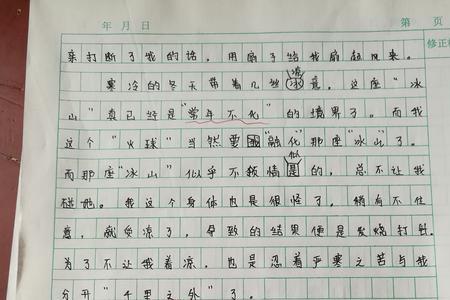 年 月 日 第 页
修正栏
亲打断了我的话，用扇子给我扇起风来。
寒冷的冬天带着几丝凉意，这座“冰
山”真已经是“常年不化”的境界了。而我
这个“火球”当然要融“融化”那座“冰山”了。
而那座“冰山”似乎不领情似的，总不让我
碰她。我这个身体也是很怪了，稍有不注
意，就着凉了，导致的结果便是发烧打针
为了不让我着凉，也是忍着严寒之苦与我
分开“千里之外”了。